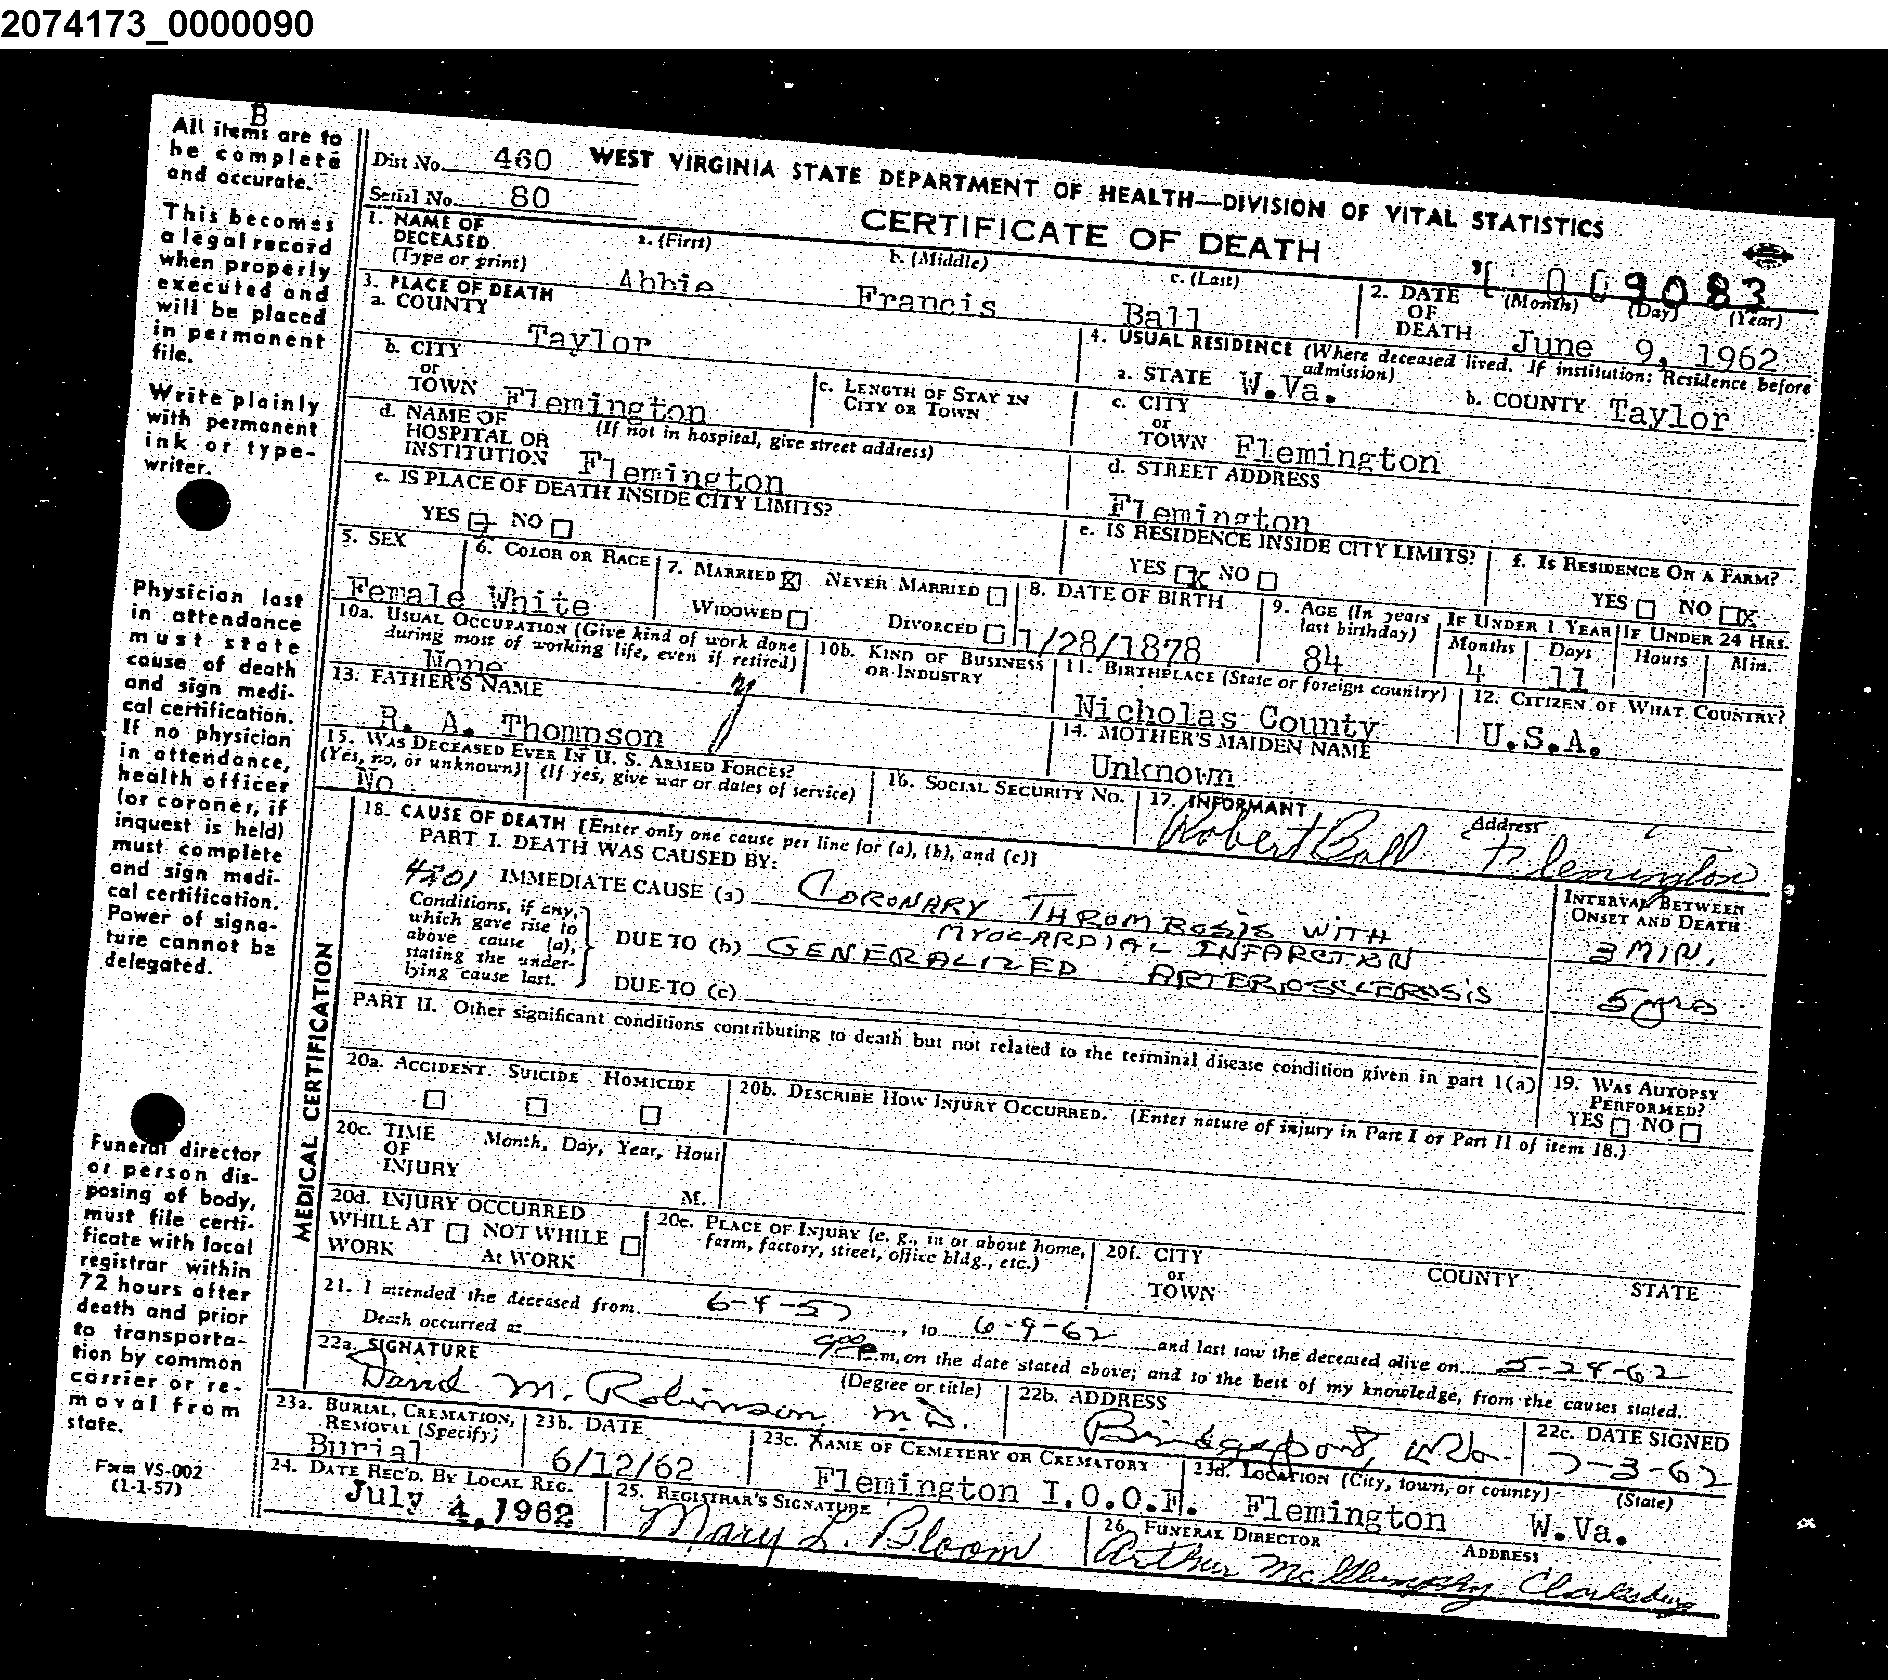 2074173_0000090
B
All items are to
be complete
and accurate.
This becomes
a legal record
when properly
executed and
will be placed
in permanent
file.
Write plainly
with permanent
ink or type-
writer.
Physician last
in attendance
must state
cause of death
and sign medi-
cal certification.
If no physician
in attendance,
health officer
(or coroner, if
inquest is held)
must complete
and sign medi-
cal certification.
Power of signa-
ture cannot be
delegated.
Funeral director
or person dis-
posing of body,
must file certi-
ficate with local
registrar within
72 hours after
death and prior
to transporta-
tion by common
carrier or re-
moval from
state.
Form VS-002
(1-1-57)
Dist No. 460 WEST VIRGINIA STATE DEPARTMENT OF HEALTH—DIVISION OF VITAL STATISTICS
Serial No. 80
CERTIFICATE OF DEATH
009083
1. NAME OF DECEASED (Type or print) a. (First) b. (Middle) c. (Last)
Abbie Francis Ball
2. DATE OF DEATH (Month) (Day) (Year)
June 9, 1962
3. PLACE OF DEATH
a. COUNTY
Taylor
4. USUAL RESIDENCE (Where deceased lived. If institution: Residence before admission)
a. STATE W.Va. b. COUNTY Taylor
b. CITY or TOWN Flemington
c. LENGTH OF STAY IN CITY OR TOWN
c. CITY or TOWN Flemington
d. NAME OF HOSPITAL OR INSTITUTION (If not in hospital, give street address)
Flemington
d. STREET ADDRESS
Flemington
e. IS PLACE OF DEATH INSIDE CITY LIMITS?
YES NO
e. IS RESIDENCE INSIDE CITY LIMITS?
YES X NO
f. IS RESIDENCE ON A FARM?
YES NO X
5. SEX
Female
6. COLOR OR RACE
White
7. MARRIED X NEVER MARRIED
WIDOWED DIVORCED
8. DATE OF BIRTH
1/28/1878
9. AGE (In years last birthday)
84
IF UNDER 1 YEAR
Months Days
4 11
IF UNDER 24 HRS.
Hours Min.
10a. USUAL OCCUPATION (Give kind of work done during most of working life, even if retired)
None
10b. KIND OF BUSINESS OR INDUSTRY
11. BIRTHPLACE (State or foreign country)
Nicholas County
12. CITIZEN OF WHAT COUNTRY?
U.S.A.
13. FATHER'S NAME
R. A. Thompson
14. MOTHER'S MAIDEN NAME
Unknown
15. WAS DECEASED EVER IN U. S. ARMED FORCES?
(Yes, no, or unknown) (If yes, give war or dates of service)
No
16. SOCIAL SECURITY NO.
17. INFORMANT Address
Robert Ball Flemington
MEDICAL CERTIFICATION
18. CAUSE OF DEATH [Enter only one cause per line for (a), (b), and (c)]
PART I. DEATH WAS CAUSED BY:
INTERVAL BETWEEN ONSET AND DEATH
4201 IMMEDIATE CAUSE (a) CORONARY THROMBOSIS WITH
MYOCARDIAL INFARCTION 3 MIN.
Conditions, if any, which gave rise to above cause (a), stating the underlying cause last.
DUE TO (b) GENERALIZED ARTERIOSCLEROSIS 5 yrs
DUE TO (c)
PART II. Other significant conditions contributing to death but not related to the terminal disease condition given in part I(a)
19. WAS AUTOPSY PERFORMED?
YES NO
20a. ACCIDENT SUICIDE HOMICIDE
20b. DESCRIBE HOW INJURY OCCURRED. (Enter nature of injury in Part I or Part II of item 18.)
20c. TIME OF INJURY Month, Day, Year, Hour
M.
20d. INJURY OCCURRED
WHILE AT WORK NOT WHILE AT WORK
20e. PLACE OF INJURY (e. g., in or about home, farm, factory, street, office bldg., etc.)
20f. CITY or TOWN COUNTY STATE
21. I attended the deceased from 6-4-57, to 6-9-62 and last saw the deceased alive on 5-24-62
Death occurred at 9:00 P.m, on the date stated above; and to the best of my knowledge, from the causes stated.
22a. SIGNATURE (Degree or title)
David M. Robinson M.D.
22b. ADDRESS
Bridgeport, W.Va.
22c. DATE SIGNED
7-3-62
23a. BURIAL, CREMATION, REMOVAL (Specify)
Burial
23b. DATE
6/12/62
23c. NAME OF CEMETERY OR CREMATORY
Flemington I.O.O.F.
23d. LOCATION (City, town, or county) (State)
Flemington W.Va.
24. DATE REC'D. BY LOCAL REG.
July 4, 1962
25. REGISTRAR'S SIGNATURE
Mary L. Bloom
26. FUNERAL DIRECTOR ADDRESS
Arthur Clarksburg